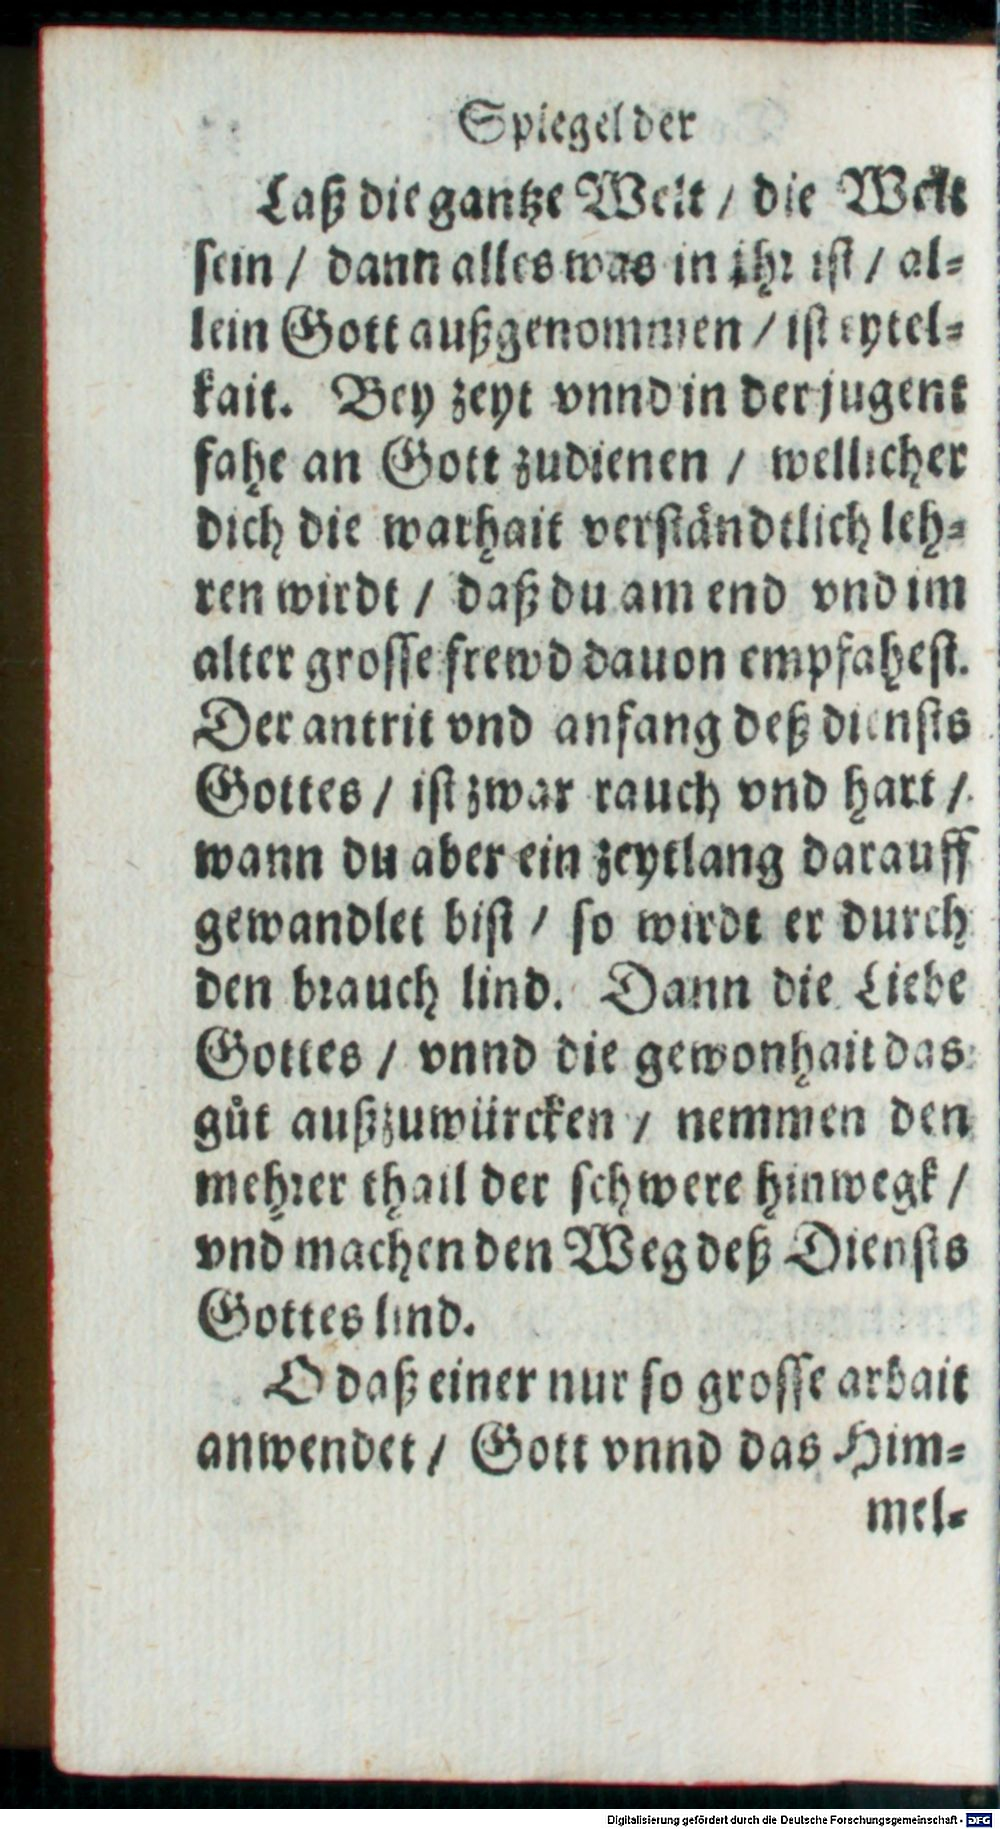 Spiegel der
Laß die gantze Welt / die Welt
sein / dann alles was in ihr ist / al-
lein Gott außgenommen / ist eytel-
kait. Bey zeyt vnnd in der jugent
fahe an Gott zudienen / wellicher
dich die warhait verständtlich leh-
ren wirdt / daß du am end vnd im
alter grosse frewd dauon empfahest.
Der antrit vnd anfang deß diensts
Gottes / ist zwar rauch vnd hart /
wann du aber ein zeytlang darauff
gewandlet bist / so wirdt er durch
den brauch lind. Dann die Liebe
Gottes / vnnd die gewonhait das
gůt außzuwürcken / nemmen den
mehrer thail der schwere hinwegk /
vnd machen den Weg deß Diensts
Gottes lind.
O daß einer nur so grosse arbait
anwendet / Gott vnnd das Him-
mel-
Digitalisierung gefördert durch die Deutsche Forschungsgemeinschaft - DFG